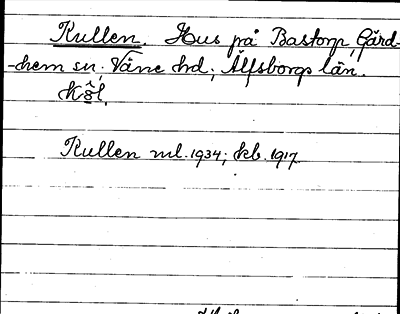 Kullen. Hus på Bastorp, Gärd-
-hem sn; Väne hd; Älfsborgs län.
Kullen ml. 1934; kb. 1917